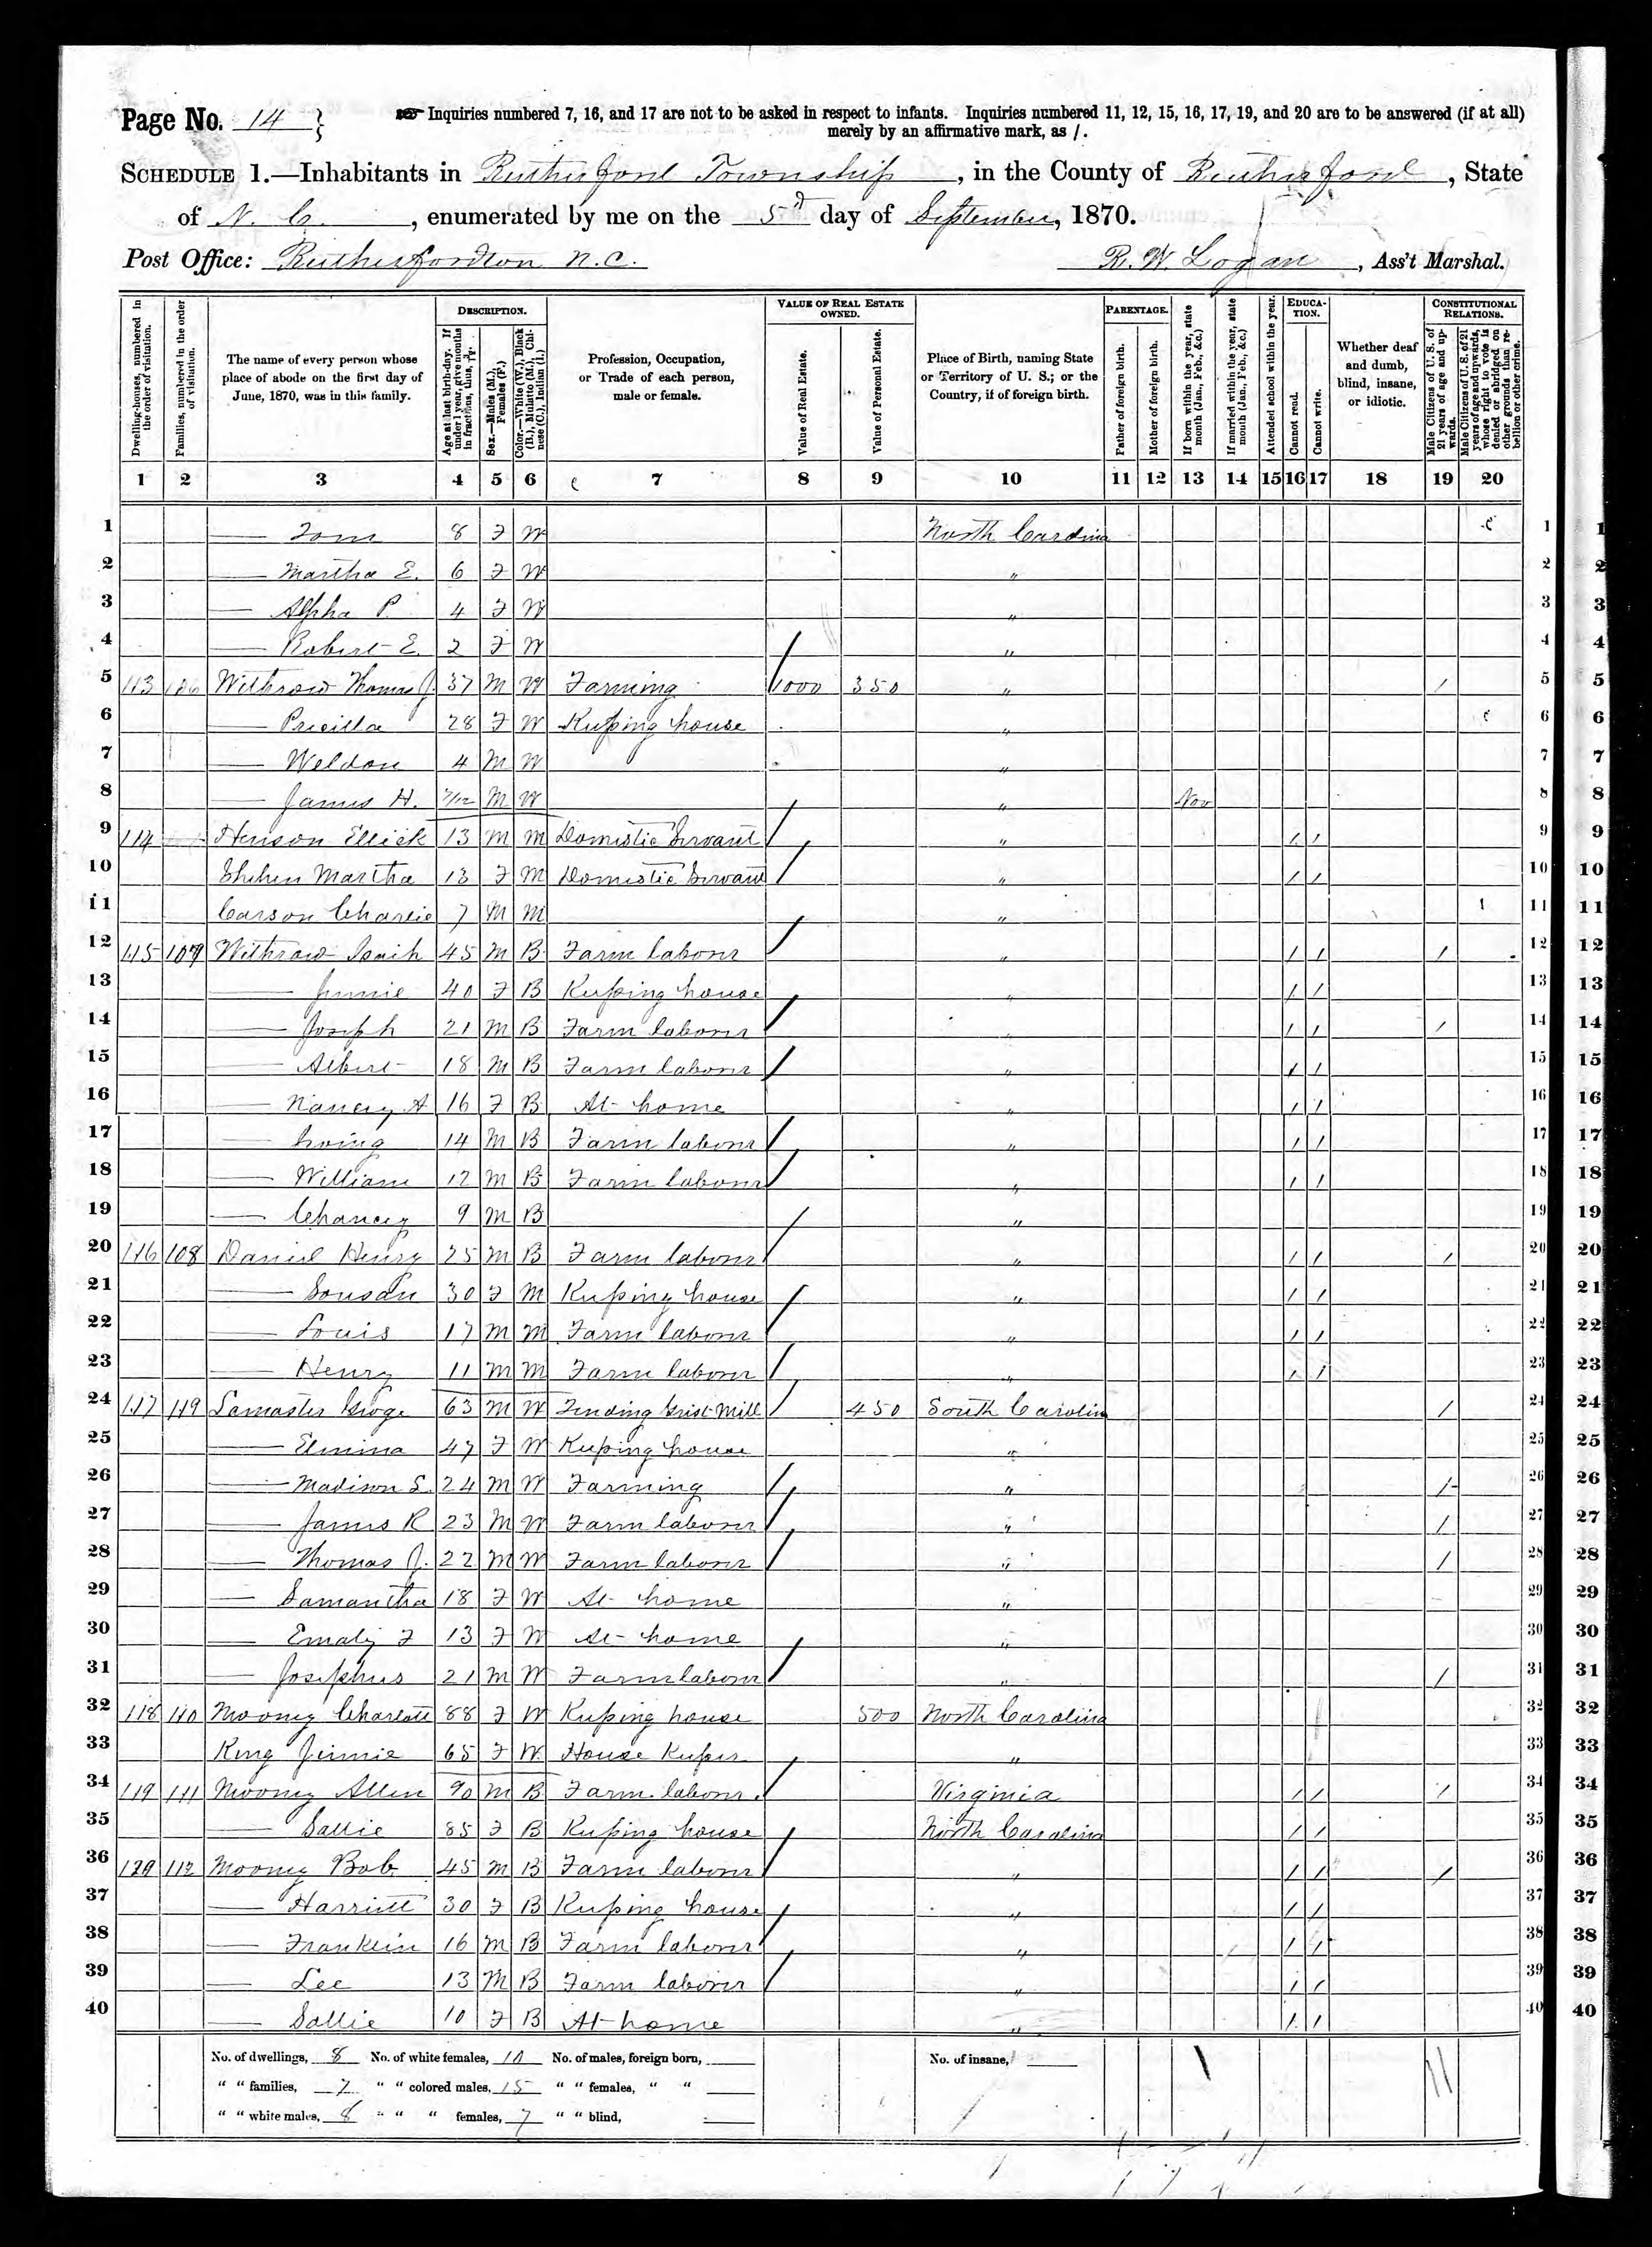 Page No. 14 } Inquiries numbered 7, 16, and 17 are not to be asked in respect to infants. Inquiries numbered 11, 12, 15, 16, 17, 19, and 20 are to be answered (if at all)
merely by an affirmative mark, as /.
SCHEDULE 1.—Inhabitants in Rutherford Township, in the County of Rutherford, State
of N. C., enumerated by me on the 5th day of September, 1870.
Post Office: Rutherfordton N.C. R. W. Logan, Ass't Marshal.
Dwelling-houses, numbered in the order of visitation.
Families, numbered in the order of visitation.
The name of every person whose place of abode on the first day of June, 1870, was in this family.
DESCRIPTION.
Age at last birth-day. If under 1 year, give months in fractions, thus,
Sex.—Males (M.), Females (F.)
Color.—White (W.), Black (B.), Mulatto (M.), Chinese (C.), Indian (I.)
Profession, Occupation, or Trade of each person, male or female.
VALUE OF REAL ESTATE OWNED.
Value of Real Estate.
Value of Personal Estate.
Place of Birth, naming State or Territory of U. S.; or the Country, if of foreign birth.
PARENTAGE.
Father of foreign birth.
Mother of foreign birth.
If born within the year, state month (Jan., Feb., &c.)
If married within the year, state month (Jan., Feb., &c.)
Attended school within the year.
EDUCATION.
Cannot read.
Cannot write.
Whether deaf and dumb, blind, insane, or idiotic.
CONSTITUTIONAL RELATIONS.
Male Citizens of U. S. of 21 years of age and upwards.
Male Citizens of U. S. of 21 years of age and upwards, whose right to vote is denied or abridged on other grounds than rebellion or other crime.
1 2 3 4 5 6 7 8 9 10 11 12 13 14 15 16 17 18 19 20
1 — Tom 8 F W North Carolina 1
2 — Martha E. 6 F W " 2
3 — Alpha P. 4 F W " 3
4 — Robert E. 2 F W " 4
5 113 106 Withrow Thomas J. 37 M W Farming 1000 350 " / 5
6 — Pricilla 28 F W Keeping house " 6
7 — Weldon 4 M W " 7
8 — James H. 7/12 M W " Nov 8
9 114 Henson Ellick 13 M M Domestic Servant " / / 9
10 Martha 13 F M Domestic Servant " / / 10
11 Carson Charlie 7 M M " 11
12 115 107 Withrow Isaih 45 M B Farm laborer " / / / 12
13 — Jinnie 40 F B Keeping house " / / 13
14 — Joseph 21 M B Farm laborer " / / / 14
15 — Albert 18 M B Farm laborer " / / 15
16 — Nancy A 16 F B At home " / / 16
17 — Irving 14 M B Farm laborer " / / 17
18 — William 12 M B Farm laborer " / / 18
19 — Chancey 9 M B " 19
20 116 108 Daniel Henry 25 M B Farm laborer " / / / 20
21 — Sousan 30 F M Keeping house " / / 21
22 — Louis 17 M M Farm laborer " / / 22
23 — Henry 11 M M Farm laborer " / / 23
24 117 119 Lamaster George 63 M W Tending Grist Mill 450 South Carolina / 24
25 — Elmina 47 F W Keeping house " 25
26 — Madison S. 24 M W Farming " / 26
27 — James R 23 M W Farm laborer " / 27
28 — Thomas J. 22 M W Farm laborer " / 28
29 — Samantha 18 F W At home " 29
30 — Emaly F 13 F W At home " 30
31 — Josephus 21 M W Farm laborer " / 31
32 118 110 Mooney Charlott 88 F W Keeping house 500 North Carolina 32
33 King Jinnie 65 F W House Keeper " 33
34 119 111 Mooney Allen 90 M B Farm laborer Virginia / / / 34
35 — Sallie 85 F B Keeping house North Carolina / / 35
36 120 112 Mooney Bob 45 M B Farm laborer " / / / 36
37 — Harriett 30 F B Keeping house " / / 37
38 — Franklin 16 M B Farm laborer " / / 38
39 — Lee 13 M B Farm laborer " / / 39
40 — Sallie 10 F B At home " / / 40
No. of dwellings, 8 No. of white females, 10 No. of males, foreign born, No. of insane, 11
" " families, 7 " " colored males, 15 " " females, " "
" " white males, 8 " " " females, 7 " " blind,